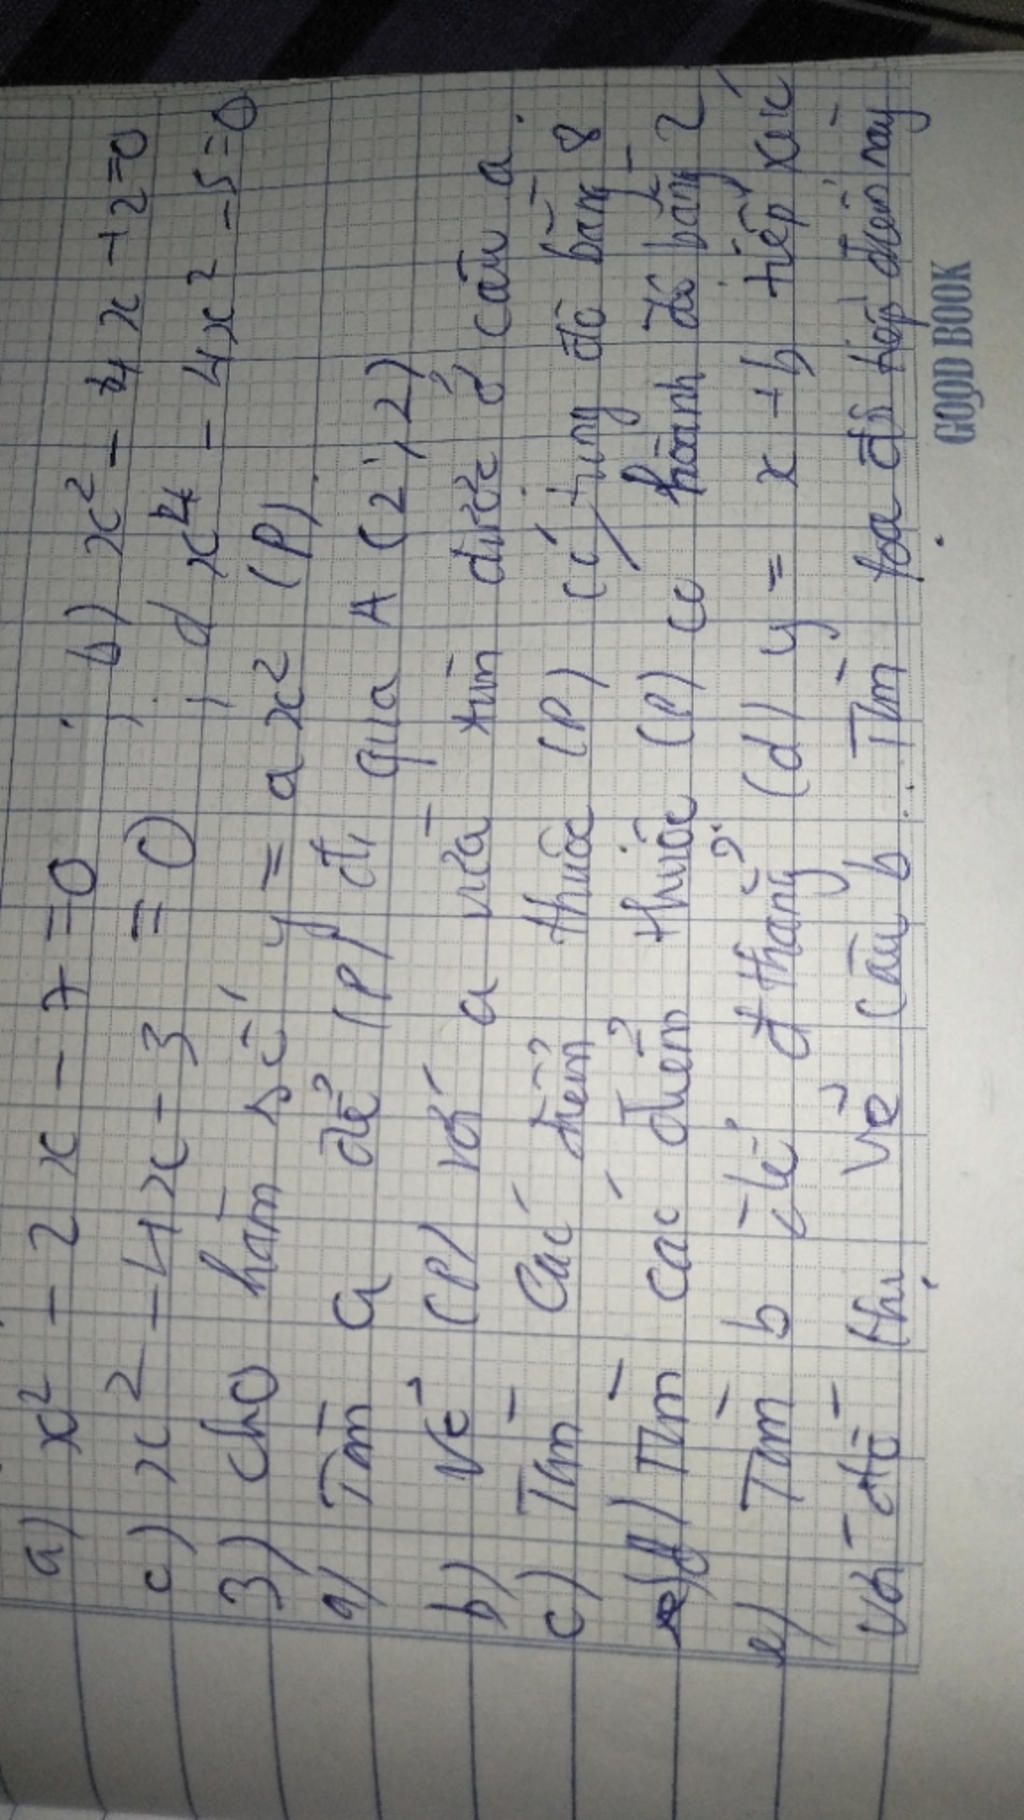 a) x² - 2x - 7 = 0 ; b) x² - 4x + 2 = 0
c) x² - 4x - 3 = 0 ; d x⁴ - 4x² - 5 = 0
3) cho hàm số y = ax² (P)
a) Tìm a để (P) đi qua A (2; 2)
b) Vẽ (P) với a vừa tìm được ở câu a.
c) Tìm các điểm thuộc (P) có tung độ bằng 8
d) Tìm các điểm thuộc (P) có hoành độ bằng 2
e) Tìm b để đ thẳng (d) y = x + b tiếp xúc
với đồ thị vẽ câu b. Tìm tọa độ tiếp điểm này
GOOD BOOK